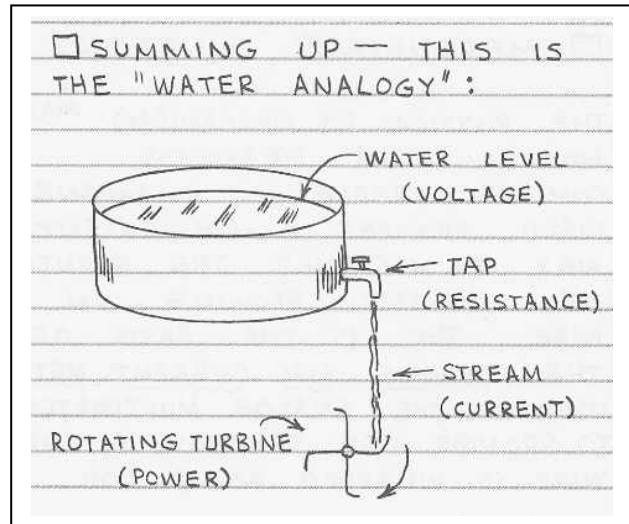 □ SUMMING UP — THIS IS
THE "WATER ANALOGY":
WATER LEVEL
(VOLTAGE)
TAP
(RESISTANCE)
STREAM
(CURRENT)
ROTATING TURBINE
(POWER)